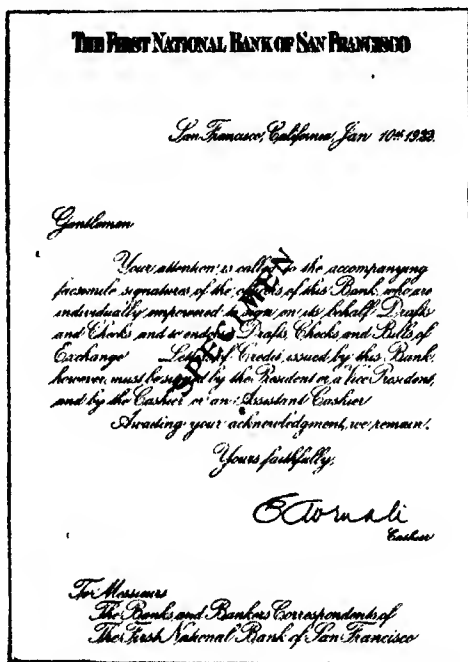 THE FIRST NATIONAL BANK OF SAN FRANCISCO
San Francisco, California, Jan 10th 1922.
Gentlemen
Your attention is called to the accompanying
facsimile signatures of the officers of this Bank, who are
individually empowered to sign on its behalf Drafts
and Checks and to endorse Drafts, Checks and Bills of
Exchange Letters of Credit issued by this Bank,
however must be signed by the President or a Vice President,
and by the Cashier or an Assistant Cashier
Awaiting your acknowledgment, we remain,
Yours faithfully,
Cashier
For Messieurs
The Banks and Bankers Correspondents of
The First National Bank of San Francisco
SPECIMEN